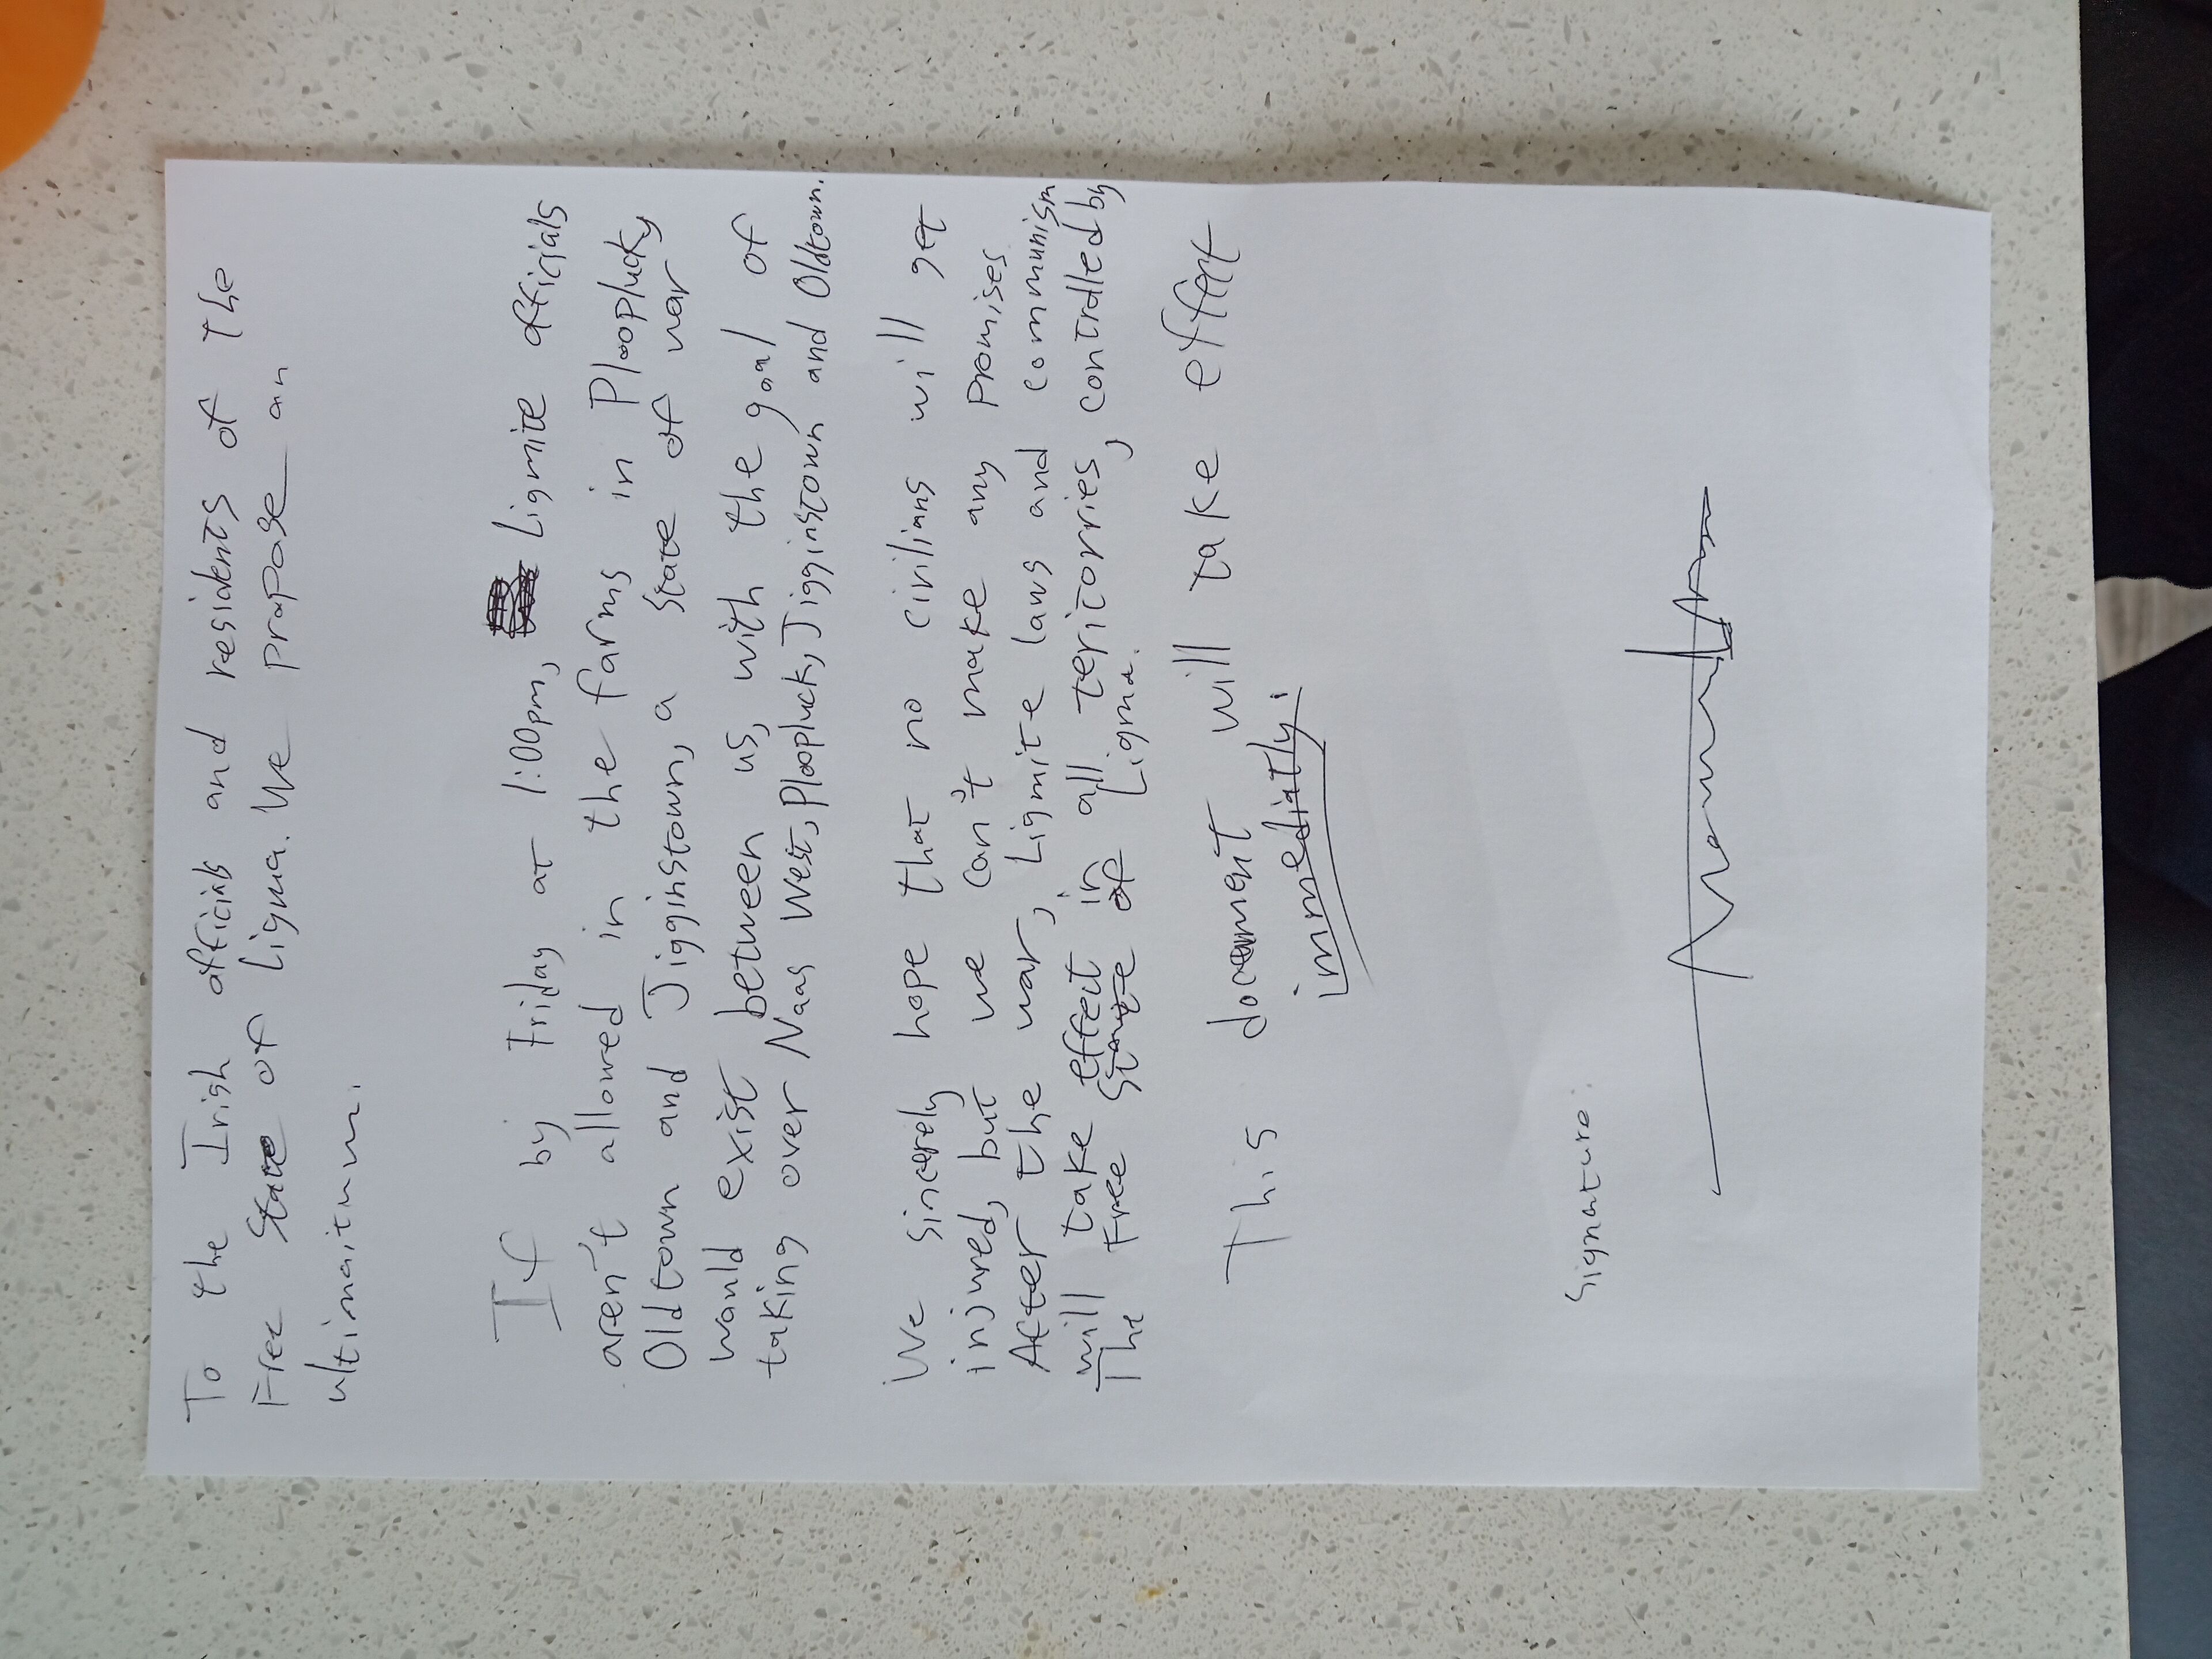 To the Irish officials and residents of the
Free State of Ligma. We propose an
ultimaitum.
If by Friday at 1:00pm, Ligmite officials
aren't allowed in the farms in Ploopluck,
Oldtown and Jigginstown, a state of war
would exist between us, with the goal of
taking over Naas West, Ploopluck, Jigginstown and Oldtown.
We sincerely hope that no civilians will get
injured, but we can't make any promises
After the war, Ligmite laws and communism
will take effect in all teritorries, controlled by
The Free State of Ligma.
This document will take effect
immediatly.
Signature: